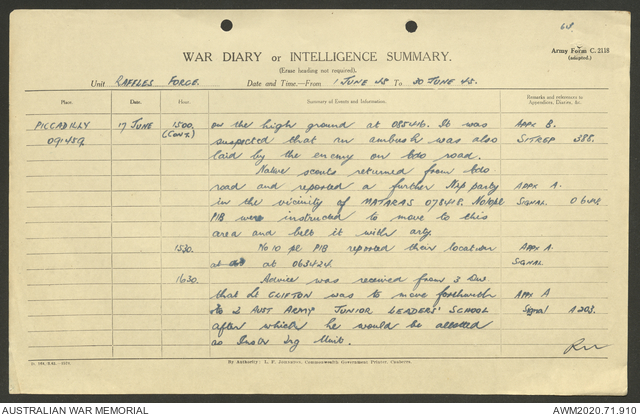 68.
WAR DIARY or INTELLIGENCE SUMMARY.
Army Form C. 2118
(adapted.)
(Erase heading not required).
Unit RAFFLES FORCE. Date and Time.—From 1 JUNE 45 To 30 JUNE 45.
Place. Date. Hour. Summary of Events and Information. Remarks and references to
Appendices, Diaries, &c.
PICCADILLY 17 JUNE 1500 on the high ground at 085416. It was APPX B.
091459 (CONT.) suspected that an ambush was also SITREP 388.
laid by the enemy on bdo road.
Native scouts returned from bdo
road and reported a further Nip party APPX A.
in the vicinity of MATARAS 078418. No10pl SIGNAL
PIB were instructed to move to this
area and belt it with arty.
1530. No 10 pl PIB reported their location APPX A
at at 063424. SIGNAL
1630. Advice was received from 3 Div
that Lt CLIFTON was to move forthwith APPX A
to 2 AUST ARMY JUNIOR LEADERS' SCHOOL Signal A203.
after which he would be allotted
as Instr Trg Unit.
By Authority: L. F. Johnston, Commonwealth Government Printer, Canberra.
AUSTRALIAN WAR MEMORIAL AWM2020.71.910